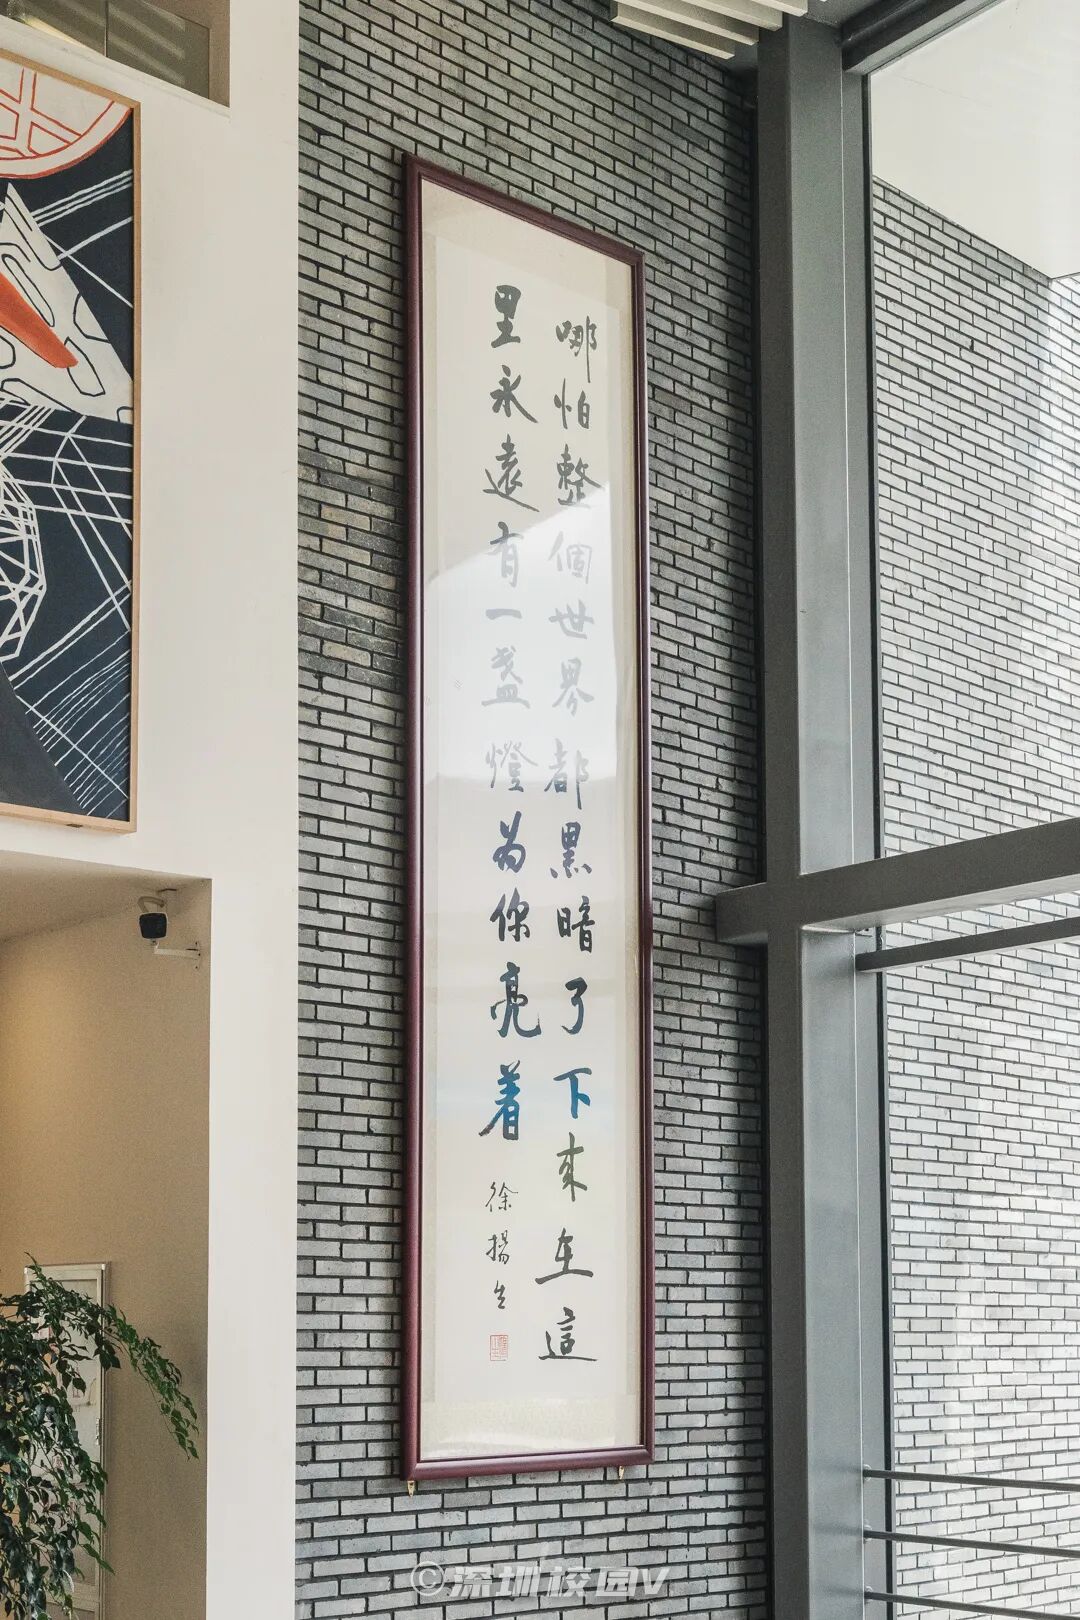 哪怕整個世界都黑暗了下來在這
里永遠有一盏燈為你亮着
徐揚生
©深圳校园V